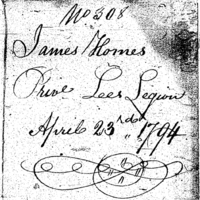 No 308
James Homes
Prive Lees Legion
April 23rd 1794